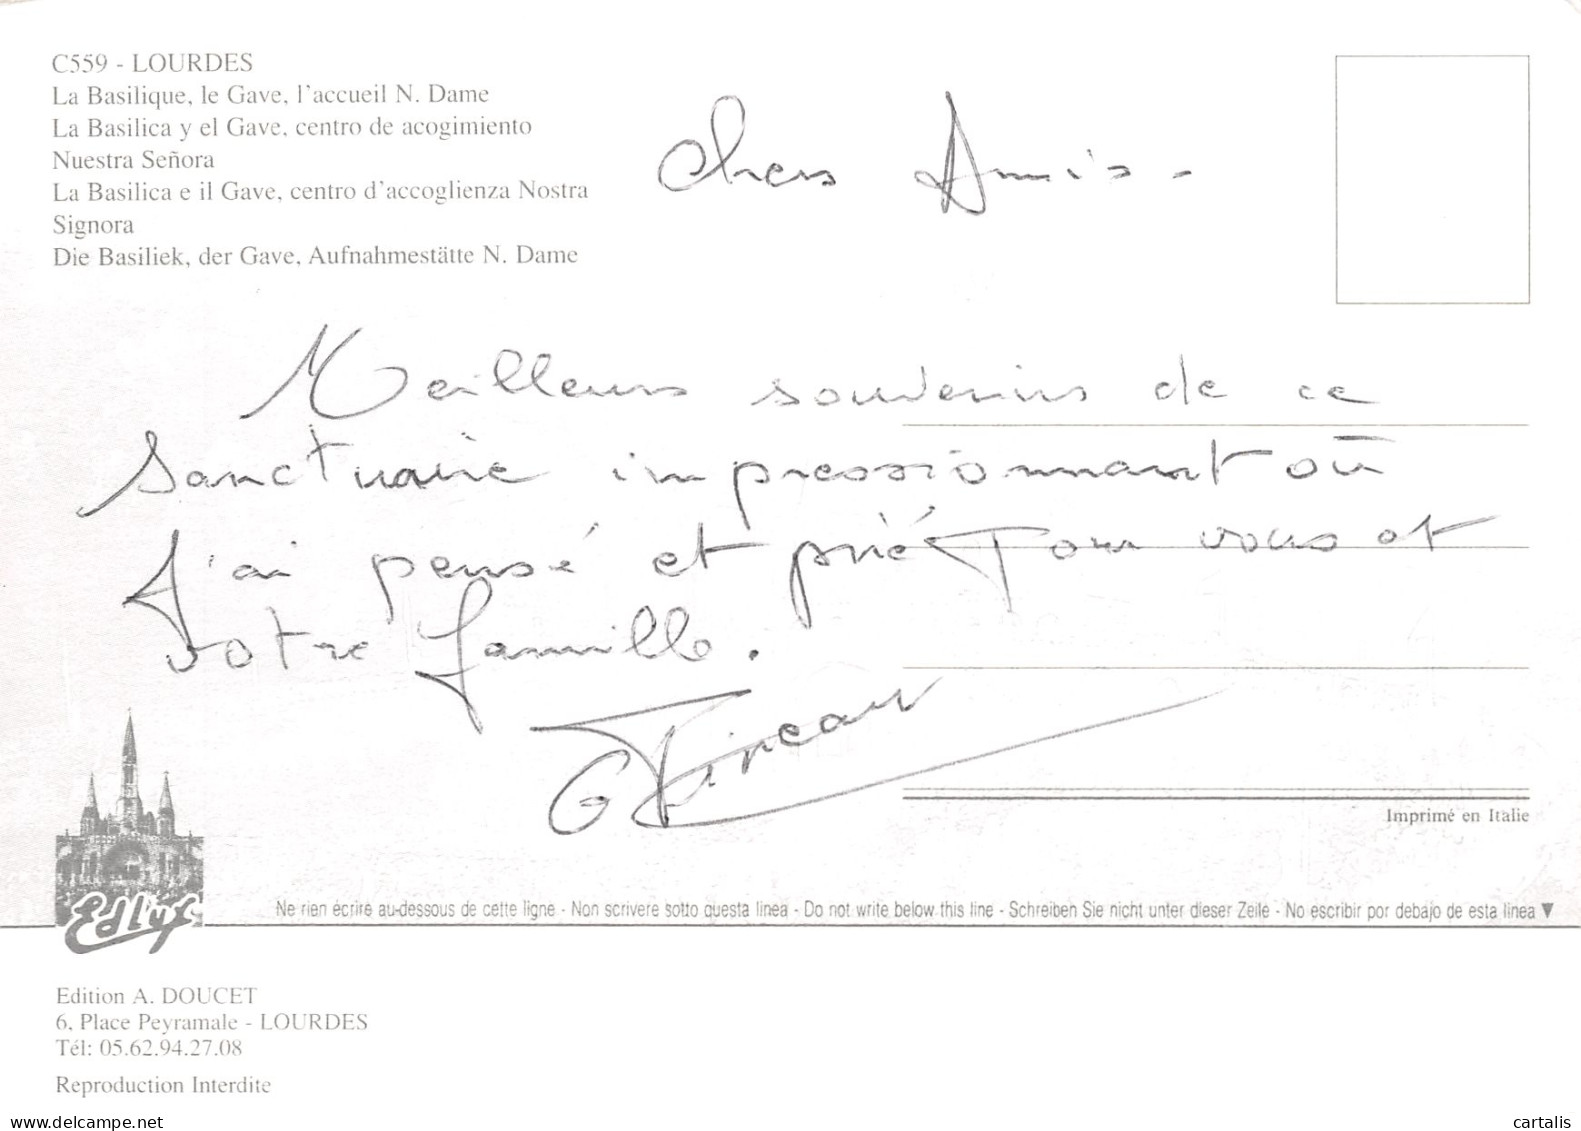 C559 - LOURDES
La Basilique, le Gave, l'accueil N. Dame
La Basilica y el Gave, centro de acogimiento
Nuestra Señora
La Basilica e il Gave, centro d'accoglienza Nostra
Signora
Die Basiliek, der Gave, Aufnahmestätte N. Dame
Chers Amis -
Meilleurs souvenirs de ce
Sanctuaire impressionnant où
J'ai pensé et prié Pour vous et
votre famille.
Edlys
Imprimé en Italie
Ne rien écrire au-dessous de cette ligne - Non scrivere sotto questa linea - Do not write below this line - Schreiben Sie nicht unter dieser Zeile - No escribir por debajo de esta linea ▼
Edition A. DOUCET
6, Place Peyramale - LOURDES
Tél: 05.62.94.27.08
Reproduction Interdite
www.delcampe.net
cartalis